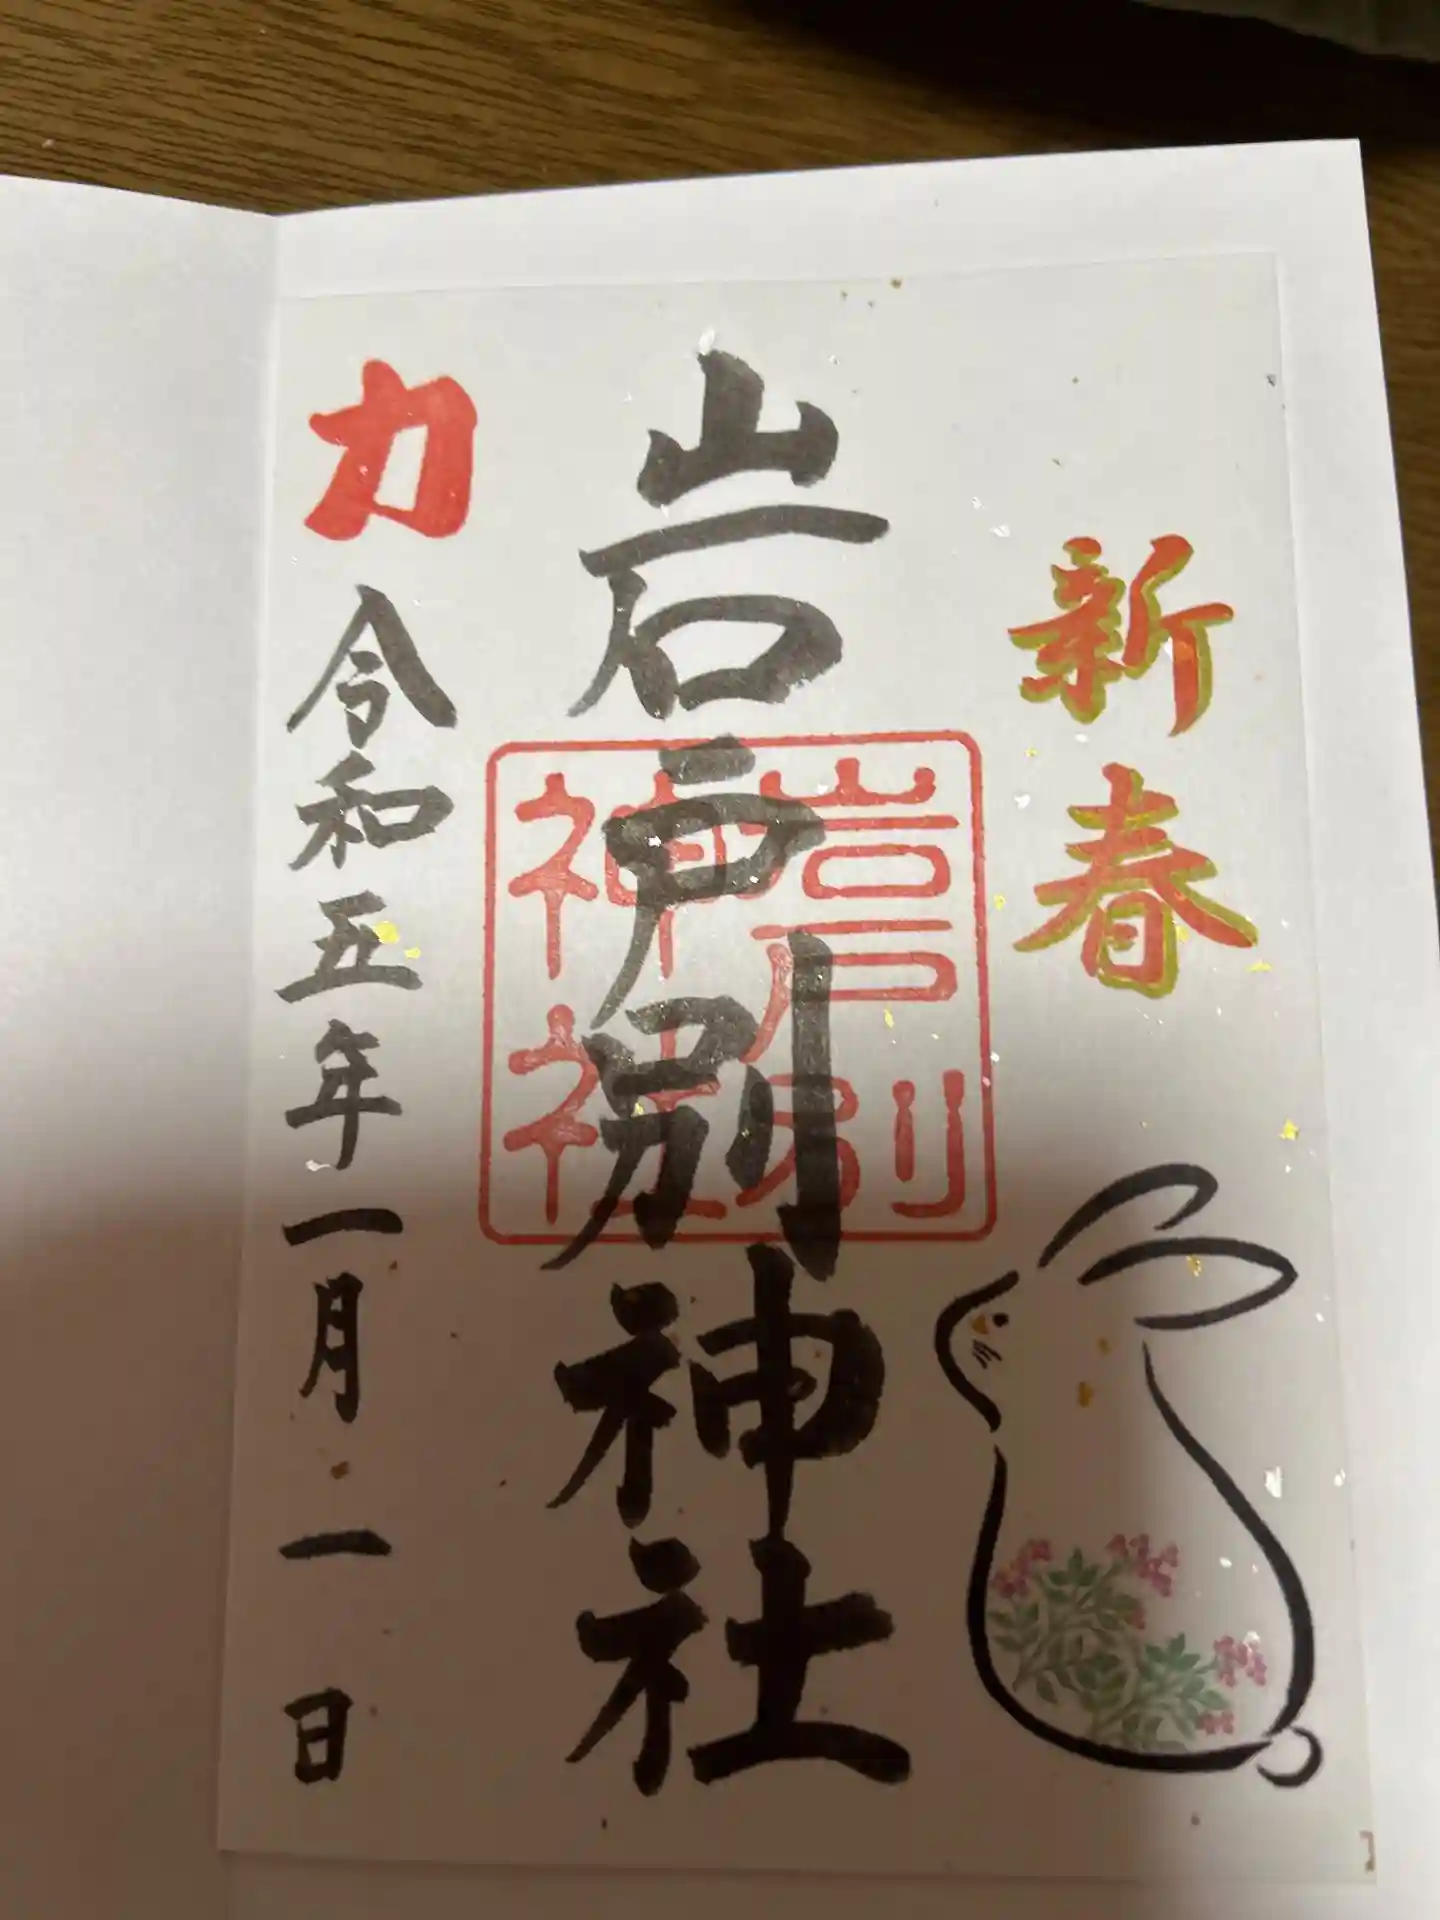 新春
岩戸別神社
岩戸別
神社
力
令和五年一月一日